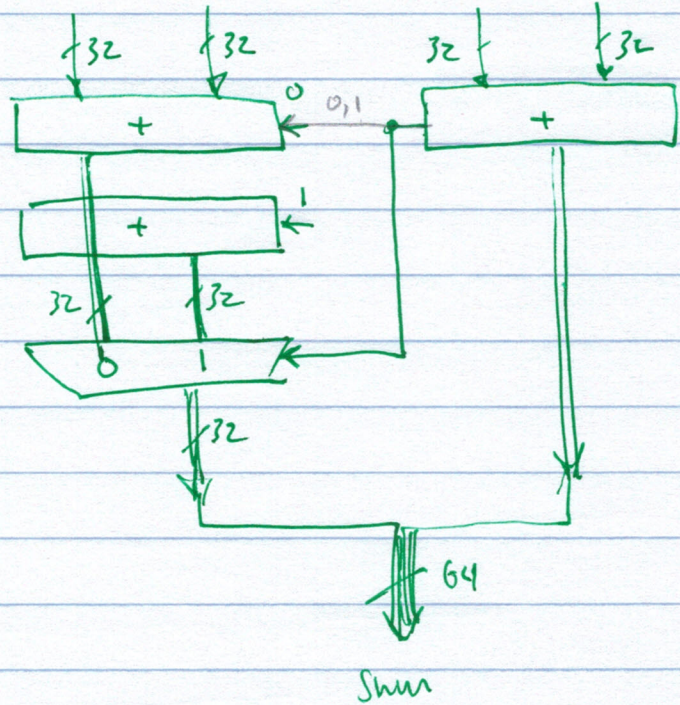 32 32 32 32
0 0,1
+ +
1
+
32 32
0 1
32
64